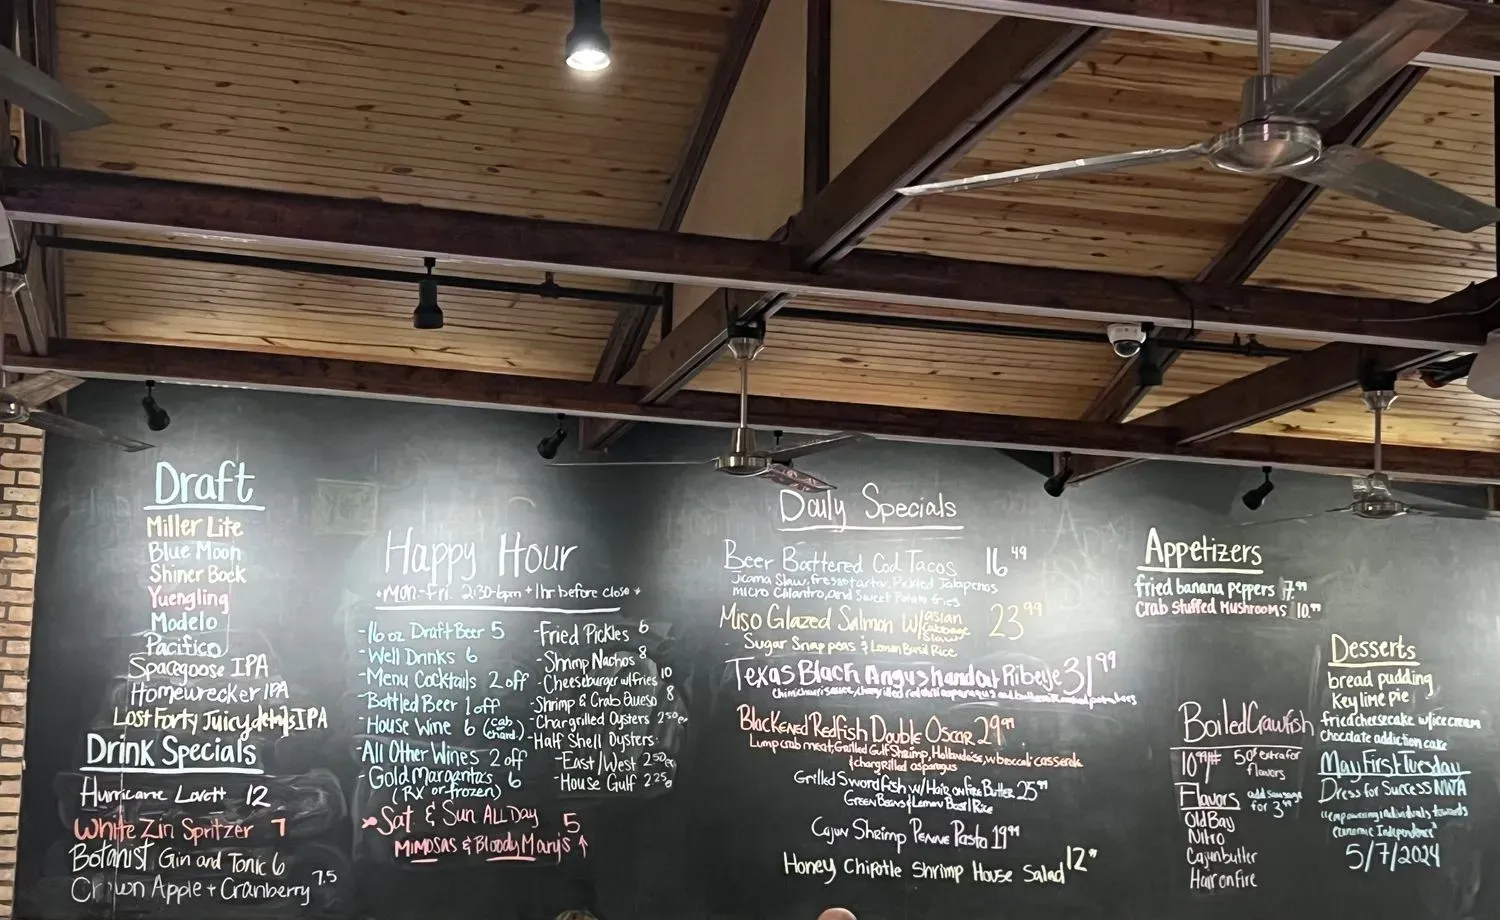 Draft
Miller Lite
Blue Moon
Shiner Bock
Yuengling
Modelo
Pacifico
Spacegoose IPA
Homewrecker IPA
Lost Forty Juicy details IPA
Drink Specials
Hurricane Lovett 12
White Zin Spritzer 7
Botanist Gin and Tonic 6
Crown Apple + Cranberry 7.5
Happy Hour
Mon-Fri 2:30-6pm + 1hr before close
-16 oz Draft Beer 5
-Well Drinks 6
-Menu Cocktails 2 off
-Bottled Beer 1 off
-House Wine 6 (cab chard)
-All Other Wines 2 off
-Gold Margaritas 6
(Rx or frozen)
-Fried Pickles 6
-Shrimp Nachos 8
-Cheeseburger w/Fries 10
-Shrimp & Crab Queso 8
-Chargrilled Oysters 2 50 ea
-Half Shell Oysters
-East/West 2 50 ea
-House Gulf 2 25 ea
Sat & Sun ALL DAY
Mimosas & Bloody Mary's 5
Daily Specials
Beer Battered Cod Tacos 16 49
Jicama Slaw, fresno tartar, Pickled Jalapenos
micro Cilantro, and Sweet Potato fries
Miso Glazed Salmon w/ asian cabbage slaw 23 99
Sugar Snap peas & Lemon Basil Rice
Texas Black Angus handcut Ribeye 31 99
Chimichurri sauce, chargrilled asparagus and potatoes
Blackened Redfish Double Oscar 29 99
Lump crab meat, Grilled Gulf Shrimp, Hollandaise, w broccoli casserole
& chargrilled asparagus
Grilled Swordfish w/ Hair on Fire Butter 25 99
Green Beans & Lemon Basil Rice
Cajun Shrimp Penne Pasta 19 99
Honey Chipotle Shrimp House Salad 12
Appetizers
fried banana peppers 7.99
Crab Stuffed Mushrooms 10.99
Boiled Crawfish
10 99/#
50¢ extra for
flavors
Flavors
add Sausage
for 3
Old Bay
Nitro
Cajun butter
Hair on Fire
Desserts
bread pudding
Key lime pie
fried cheesecake w/ice cream
chocolate addiction cake
May First Tuesday
Dress for Success NWA
"empowering individuals towards
economic Independence"
5/7/2024